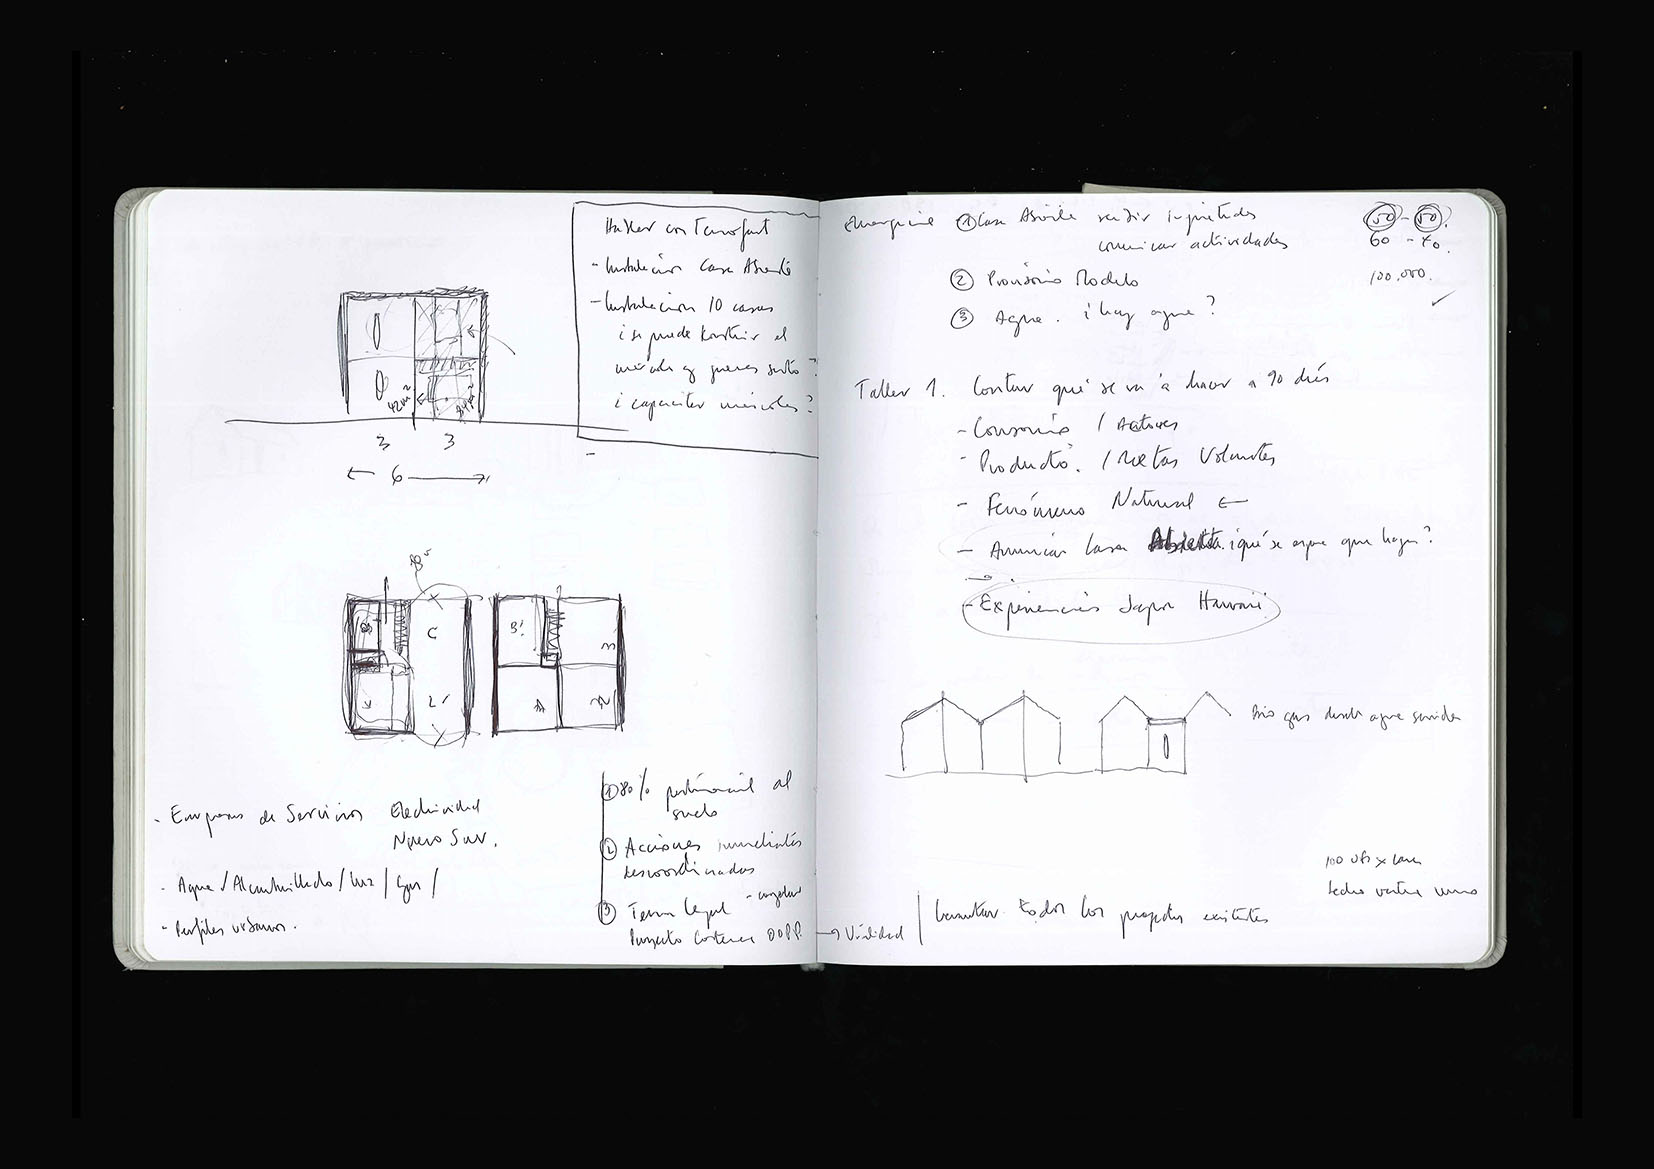 Hablar con Tecnofast
- Instalación Casa Abierta
- Instalación 10 casas
¿se puede construir el
miércoles y jueves santo?
¿capacitar miércoles?
42m²
3 3
6
B'
C
- Empresas de Servicios Electricidad
Nuevo Sur.
- Agua / Alcantarillado / Luz / Gas /
- Perfiles urbanos.
① 80% patrimonial al
suelo
② Acciones inmediatas
descoordinadas
③ Tema legal - congelar
Proyecto Costanera OOPP. → Vialidad
① Casa Abierta recibir inquietudes
comunicar actividades
② Provisorio Modelo
③ Agua. ¿hay agua?
50 - 50?
60 - 40.
100.000.
Taller 1. Contar qué se va a hacer a 90 días
- Consorcio / Actores
- Producto. / Metas Volantes
- Fenómeno Natural ←
- Anunciar Casa Abierta. ¿qué se espera que hagan?
- Experiencias Japón Hawaii
Bio gas desde agua servidas
100 Ufs x casa
Levantar todos los proyectos existentes